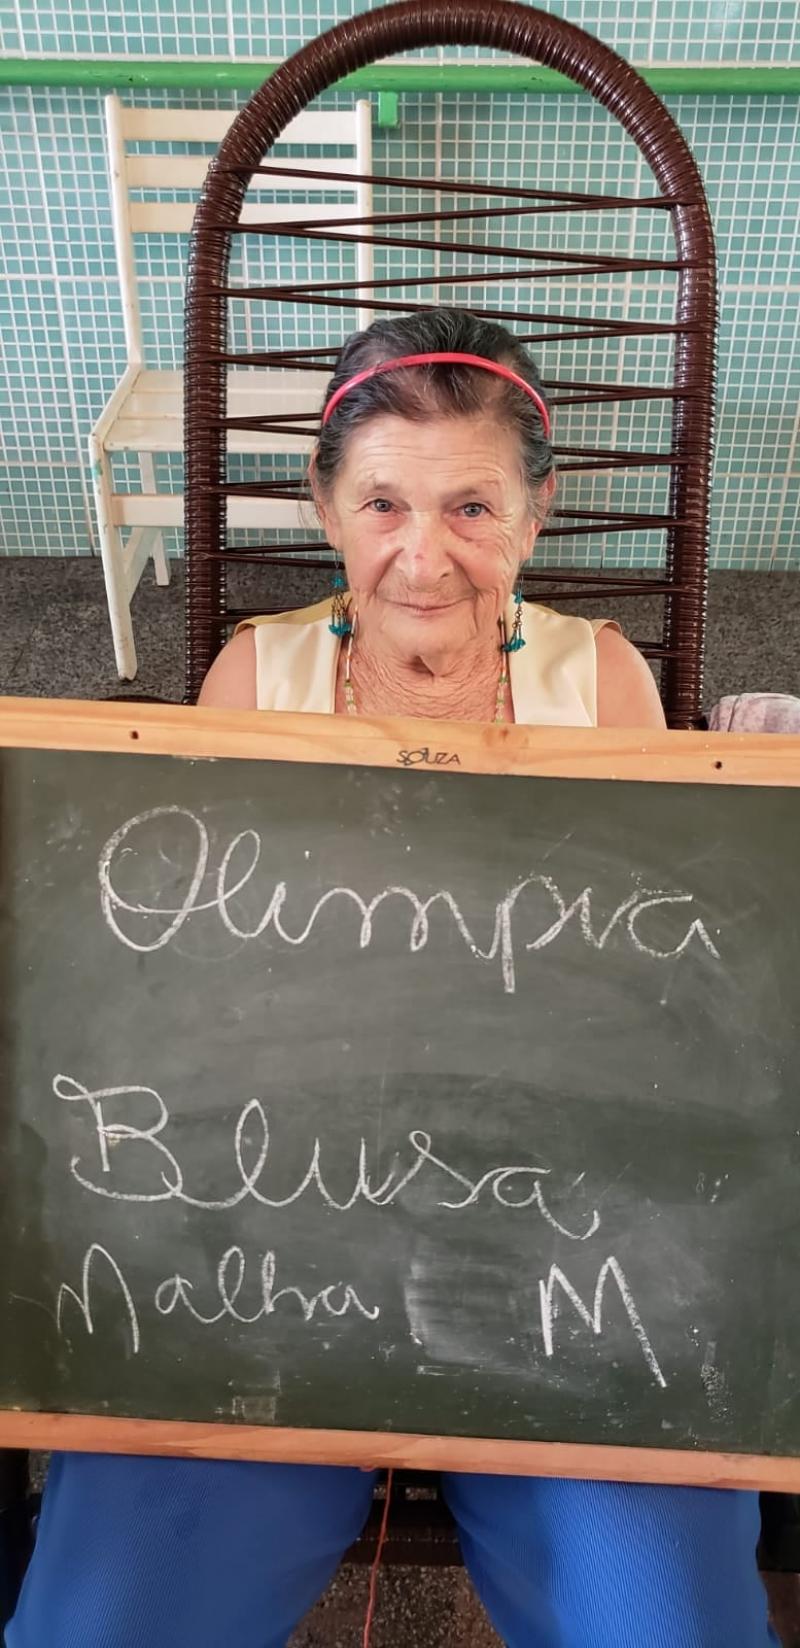 SOUZA
Olimpia
Blusa
Malha M